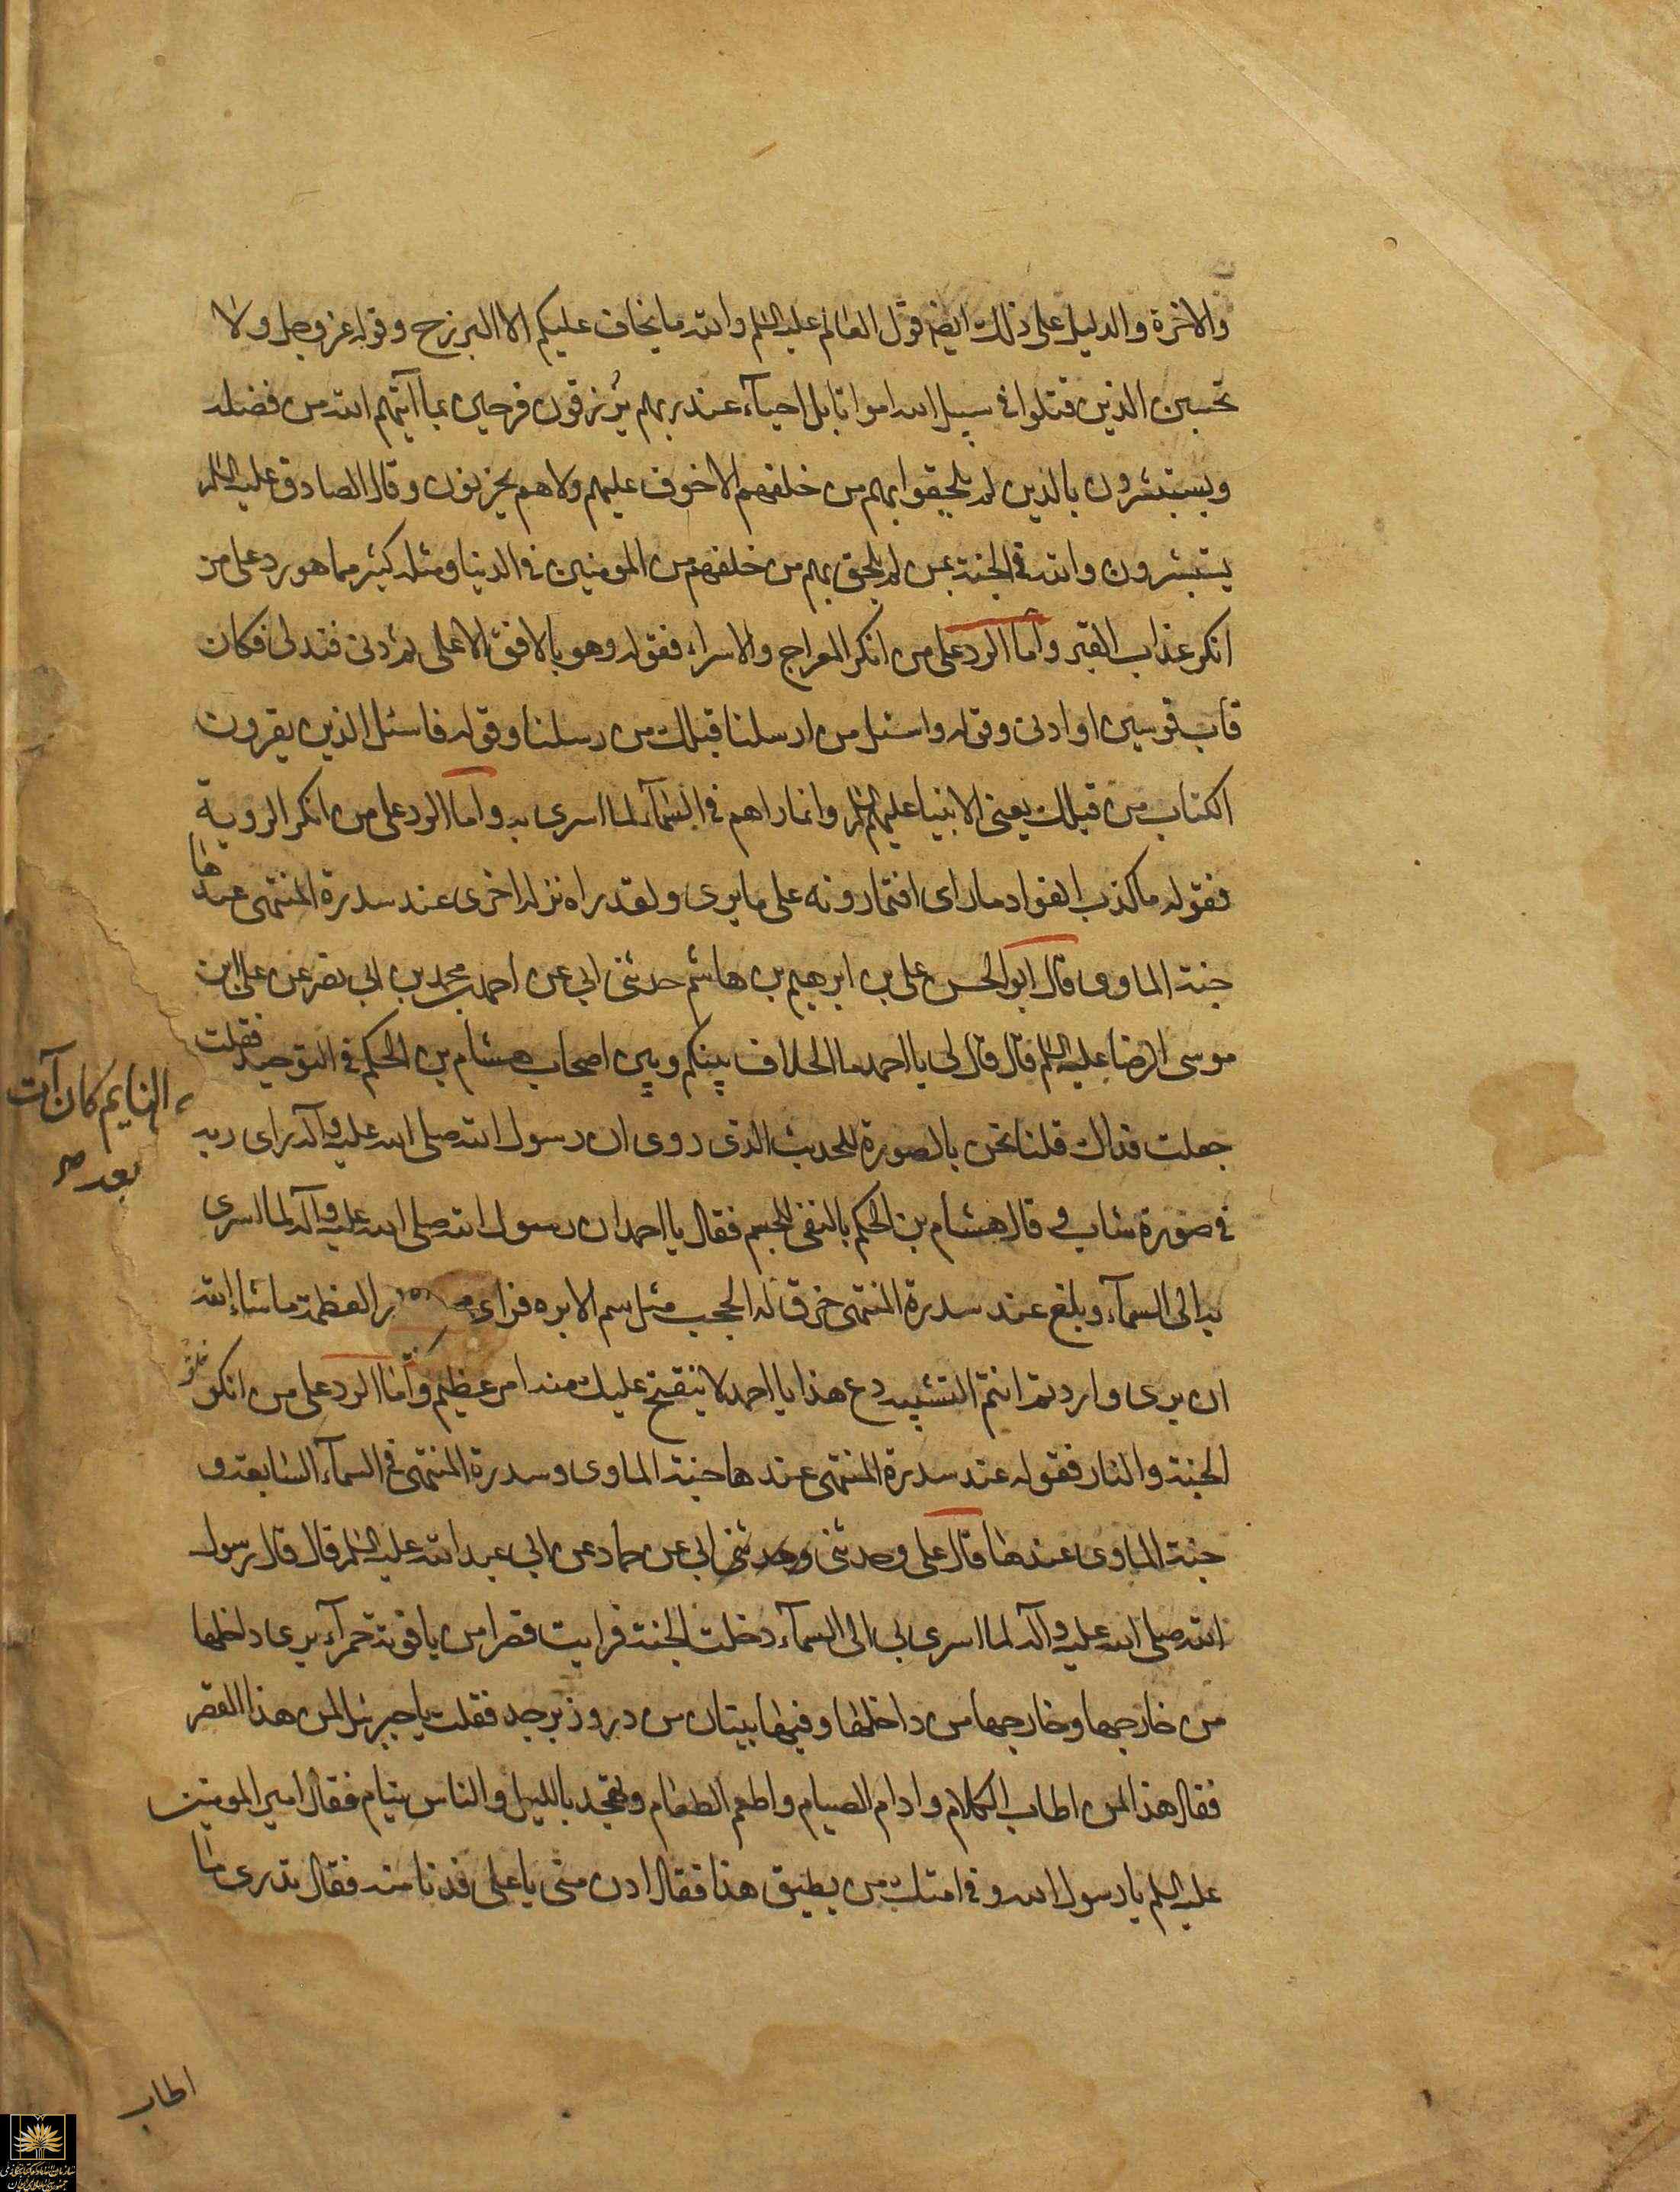 والاخرة والدليل على ذلك ايضا قول العالم عليه السلم والله ما يخاف عليكم الا البرزخ وقوله عز وجل ولا
تحسبن الذين قتلوا في سبيل الله امواتا بل احيآء عند ربهم يرزقون فرحين بما آتيهم الله من فضله
ويستبشرون بالذين لم يلحقوا بهم من خلفهم الا خوف عليهم ولا هم يحزنون وقال الصادق عليه السلم
يستبشرون والله في الجنة بمن لم يلحق بهم من خلفهم من المومنين في الدنيا ومثله كثير مما هو رد على من
انكر عذاب القبر واما الرد على من انكر المعراج والاسراء فقوله وهو بالافق الاعلى ثم دنى فتدلى فكان
قاب قوسين او ادنى وقوله واسئل من ارسلنا قبلك من رسلنا وقوله فاسئل الذين يقرون
الكتاب من قبلك يعني الانبيا عليهم السلم وانما راهم في السمآء لما اسرى به واما الرد على من انكر الروية
فقوله ما كذب الفواد ما راى افتمارونه على ما يرى ولقد راه نزلة اخرى عند سدرة المنتهى عندها
جنة الماوى قال ابو الحسن على بن ابرهيم بن هاشم حدثنى ابى عن احمد بن محمد بن ابى نصر عن على ابن
موسى الرضا عليه السلم قال قال لى يا احمد ما الخلاف بينكم وبين اصحاب هشام بن الحكم في التوحيد فقلت
جعلت فداك قلنا نحن بالصورة للحديث الذى روى ان رسول الله صلى الله عليه وآله راى ربه
في صورة شاب و قال هشام بن الحكم بالنفى للجسم فقال يا احمد ان رسول الله صلى الله عليه وآله لما اسرى
به الى السمآء وبلغ عند سدرة المنتهى خرق له الحجب مثل سم الابره فراى العظمة ما شاء الله
ان يرى واردتم انتم التشبيه دع هذا يا احمد لا ينفتح عليك منه امر عظيم واما الرد على من انكر
الجنة والنار فقوله عند سدرة المنتهى عندها جنة الماوى وسدرة المنتهى في السمآء السابعة و
جنة الماوى عندها قال على وحدثنى وحدثنى ابى عن حماد عن ابى عبد الله عليه السلم قال قال رسول
الله صلى الله عليه وآله لما اسرى بى الى السمآء دخلت الجنة فرايت قصرا من ياقوتة حمرآء يرى داخلها
من خارجها وخارجها من داخلها وفيها بيتان من در وزبرجد فقلت يا جبرئيل لمن هذا القصر
فقال هذا لمن اطاب الكلام وادام الصيام واطعم الطعام وتهجد بالليل والناس نيام فقال امير المومنين
عليه السلم يا رسول الله وفي امتك من يطيق هذا فقال ادن منى يا على فدنا منه فقال تدرى ما
اطاب